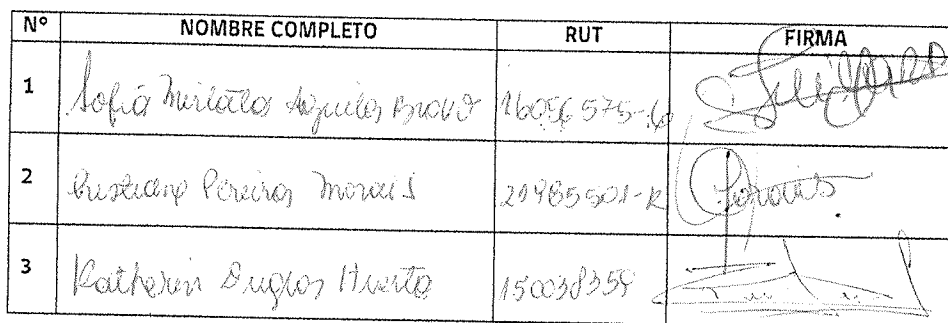 N° NOMBRE COMPLETO RUT FIRMA
1 Sofia Aguilar Bravo 16056575-6
2 Cristiane Pereira Morais 21985501-K Morais
3 Katherin Huerta 150038359